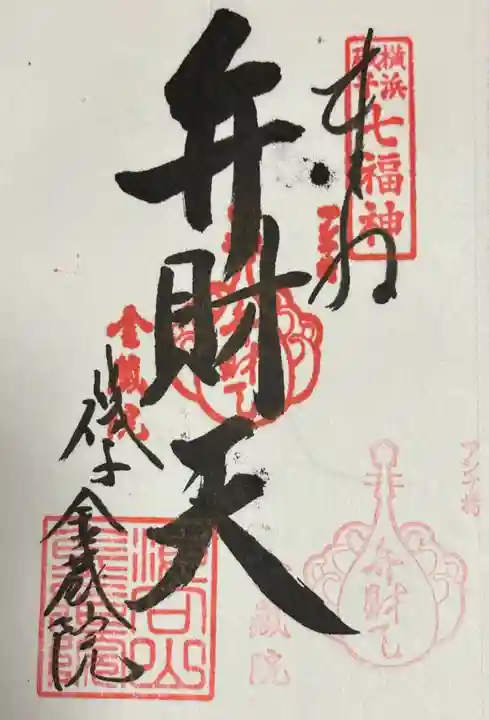 横浜
磯子
七福神
奉拝
弁財天
弁財天
金蔵院
磯子 金蔵院
弁財天
蔵院